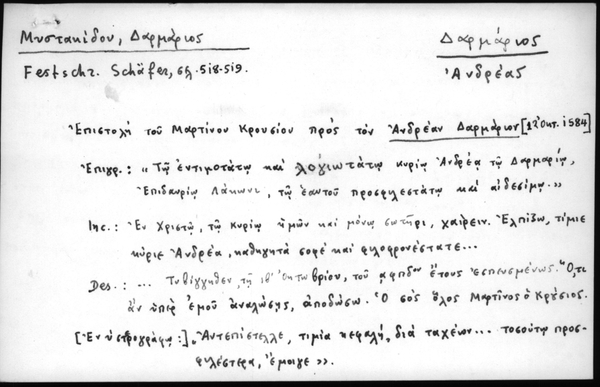 Μυστακίδου, Δαρμάριος
Δαρμάριος
Festschr. Schäfer, σξ. 518-519.
Ἀνδρέας
Ἐπιστολὴ τοῦ Μαρτίνου Κρουσίου πρὸς τὸν Ἀνδρέαν Δαρμάριον [12 Ὀκτ. 1584]
Ἐπιγρ.: "Τῷ ἐντιμοτάτῳ καὶ λογιωτάτῳ κυρίῳ Ἀνδρέᾳ τῷ Δαρμαρίῳ,
Ἐπιδαυρίῳ Λάκωνι, τῷ ἑαυτοῦ προσφιλεστάτῳ καὶ αἰδεσίμῳ.»
Inc.: Ἐν Χριστῷ, τῷ κυρίῳ ἡμῶν καὶ μόνῳ σωτῆρι, χαίρειν. Ἐλπίζω, τίμιε
κύριε Ἀνδρέα, καθηγητὰ σοφὲ καὶ φιλοφρονέστατε...
Des.: ... Τυβίγγηθεν, τῇ ιβ' Ὀκτωβρίου, τοῦ αφπδου ἔτους ἐσπευσμένως. Ὅ,τι
ἂν ὑπὲρ ἐμοῦ ἀναλώσῃς, ἀποδώσω. Ὁ σὸς ὅλος Μαρτῖνος ὁ Κρούσιος.
[Ἐν ὑστερογράφῳ:] "Ἀντεπίστελλε, τιμία κεφαλή, διὰ ταχέων... τοσούτῳ προσ-
φιλέστερα, ἔμοιγε».